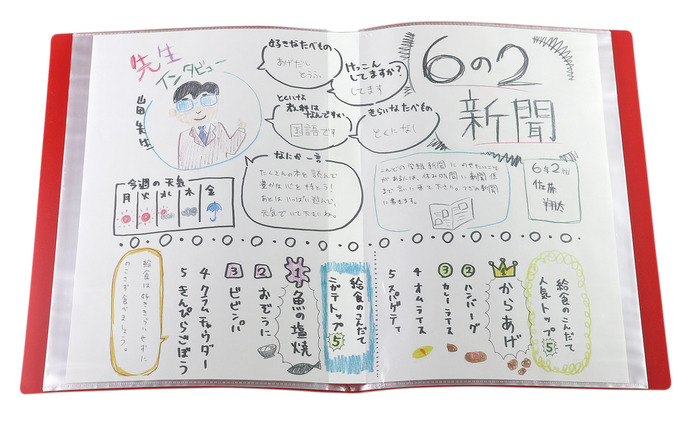 6の2
新聞
先生
インタビュー
山田先生
好きなたべもの
あげだし
とうふ
けっこん
してますか?
してます
とくいな
教科は
なんですか
国語です
きらいなたべもの
とくになし
なにか一言
たくさんの本を読んで
豊かな心をもとう!
あとは、いっぱい遊んで、
元気でいて下さいね。
こんどの学級新聞に のせたいこと
がある人は、休み時間に新聞係
まで言いに来て下さい。つぎの新聞
に書きます。
6の2
佐藤
翔太
今週の天気
月 火 水 木 金
給食のこんだて
人気トップ5
1 からあげ
2 ハンバーグ
3 カレーライス
4 オムライス
5 スパゲティ
給食のこんだて
ニガテトップ5
1 魚の塩焼
2 おぞうに
3 ビビンバ
4 クラムチャウダー
5 きんぴらごぼう
給食は好ききらいせずに
のこさず食べましょう。